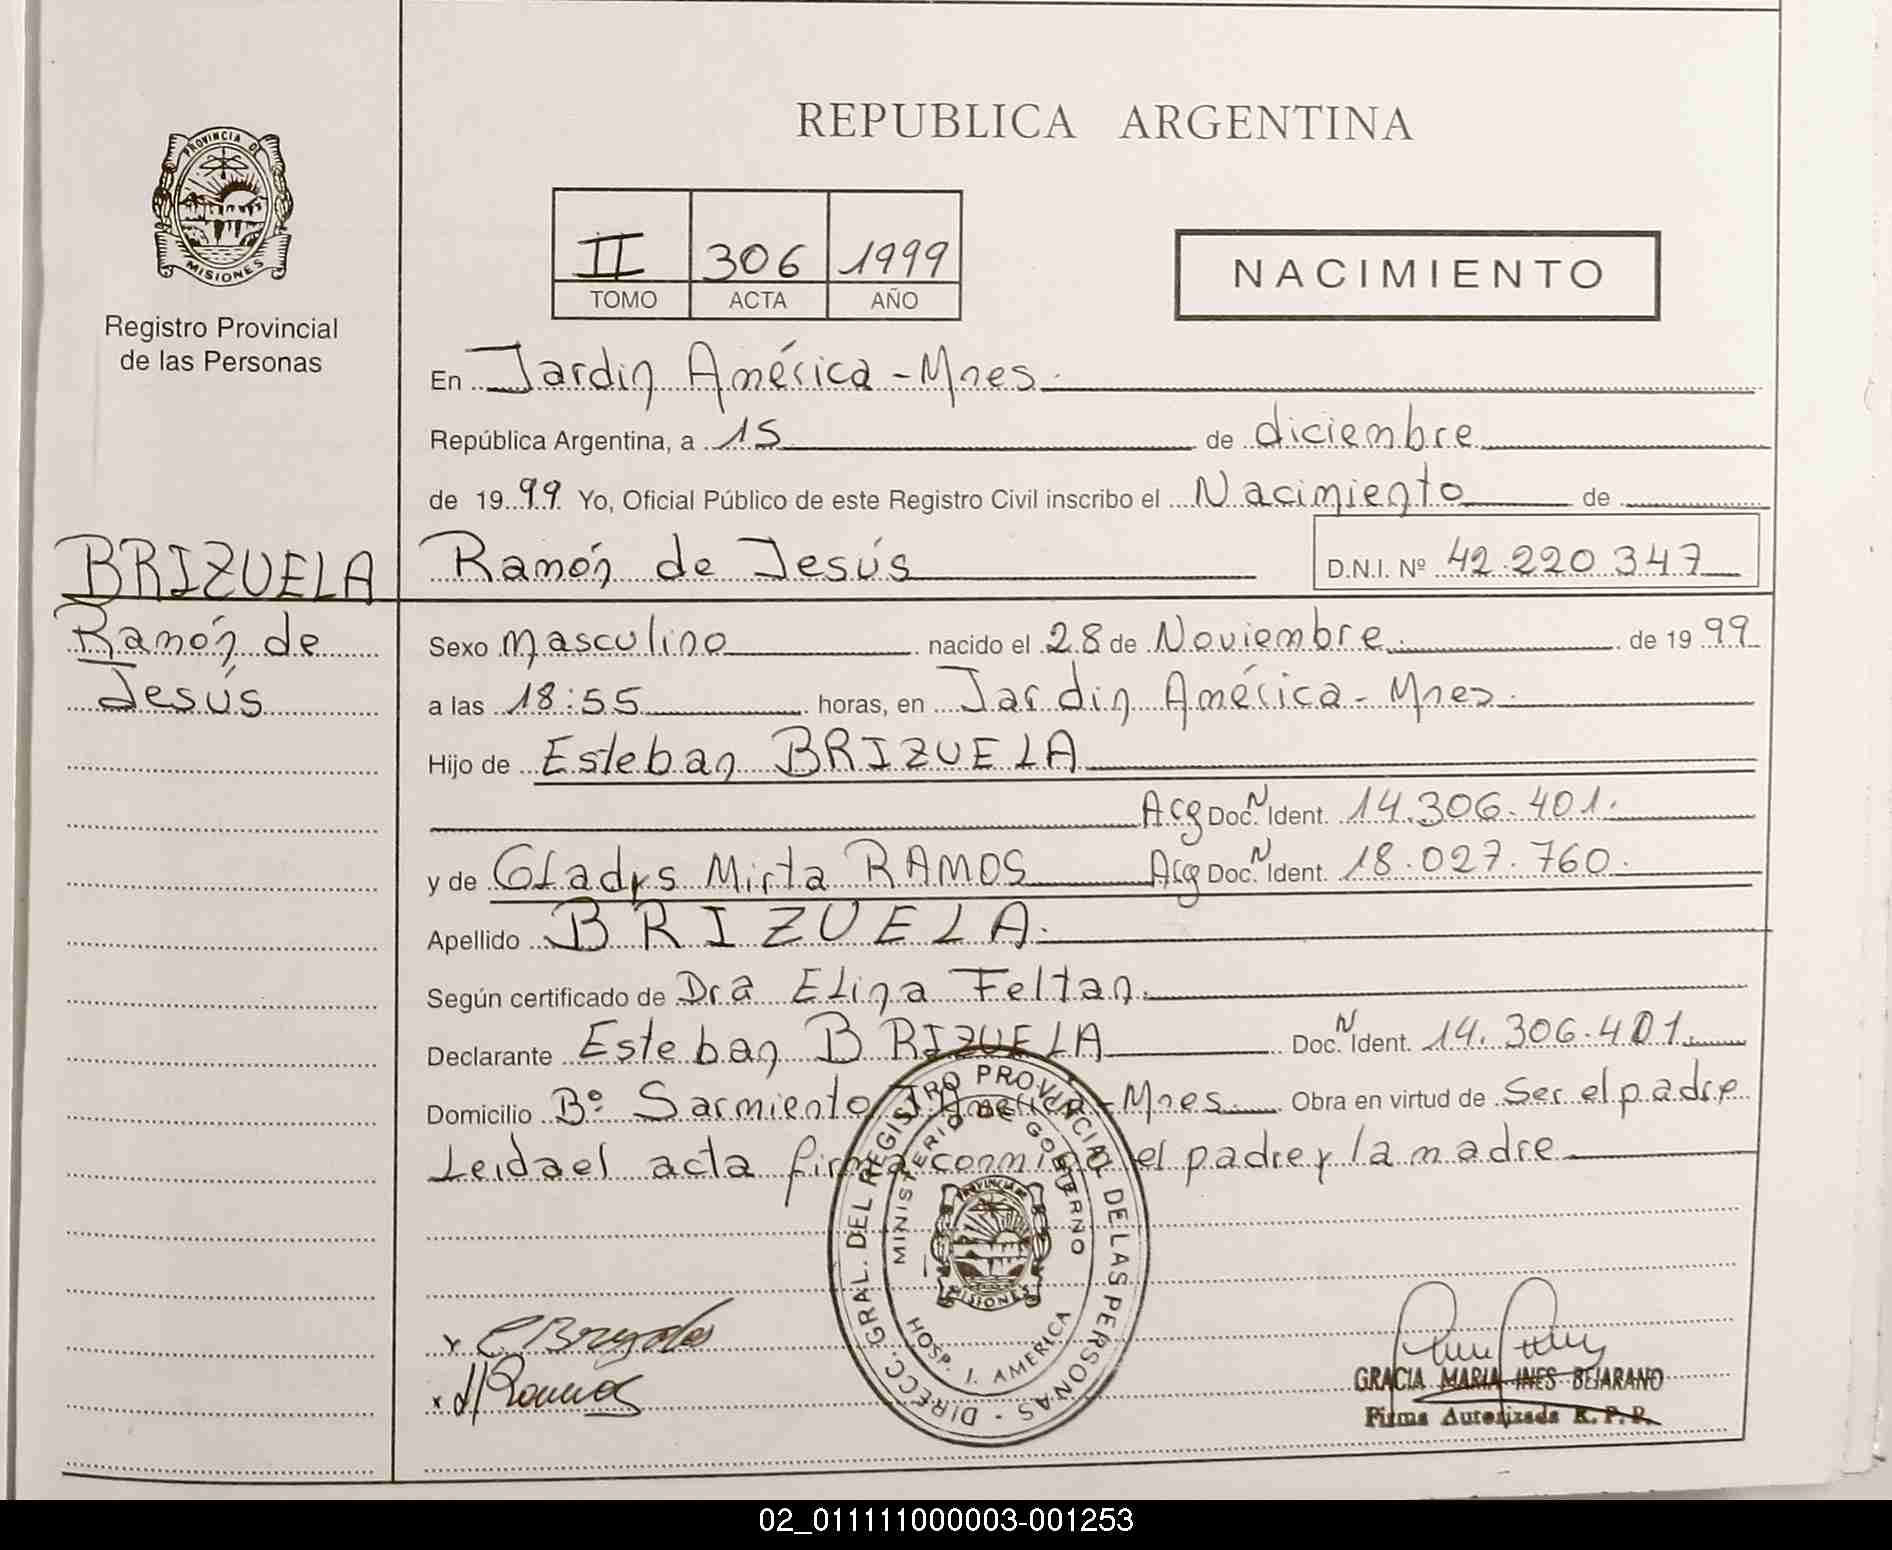 REPUBLICA ARGENTINA
PROVINCIA DE
MISIONES
Registro Provincial
de las Personas
II 306 1999
TOMO ACTA AÑO
NACIMIENTO
En Jardin América - Mnes.
República Argentina, a 15 de diciembre
de 1999 Yo, Oficial Público de este Registro Civil inscribo el Nacimiento de
BRIZUELA
Ramón de
Jesús
Ramón de Jesús D.N.I. Nº 42.220.347
Sexo Masculino nacido el 28 de Noviembre de 1999
a las 18:55 horas, en Jardin América - Mnes.
Hijo de Esteban BRIZUELA
Arg Doc. N Ident. 14.306.401.
y de Gladys Mirta RAMOS Arg Doc. N Ident. 18.027.760.
Apellido BRIZUELA.
Según certificado de Dra Elina Feltan.
Declarante Esteban BRIZUELA Doc. N Ident. 14.306.401.
Domicilio Bº Sarmiento J. América - Mnes. Obra en virtud de Ser el padre
Leida el acta firma conmigo el padre y la madre
DIRECC. GRAL. DEL REGISTRO PROVINCIAL DE LAS PERSONAS -
MINISTERIO DE GOBIERNO
PROVINCIA DE
MISIONES
HOSP. J. AMERICA
GRACIA MARIA INES BEJARANO
Firma Autorizada R. P. P.
02_011111000003-001253